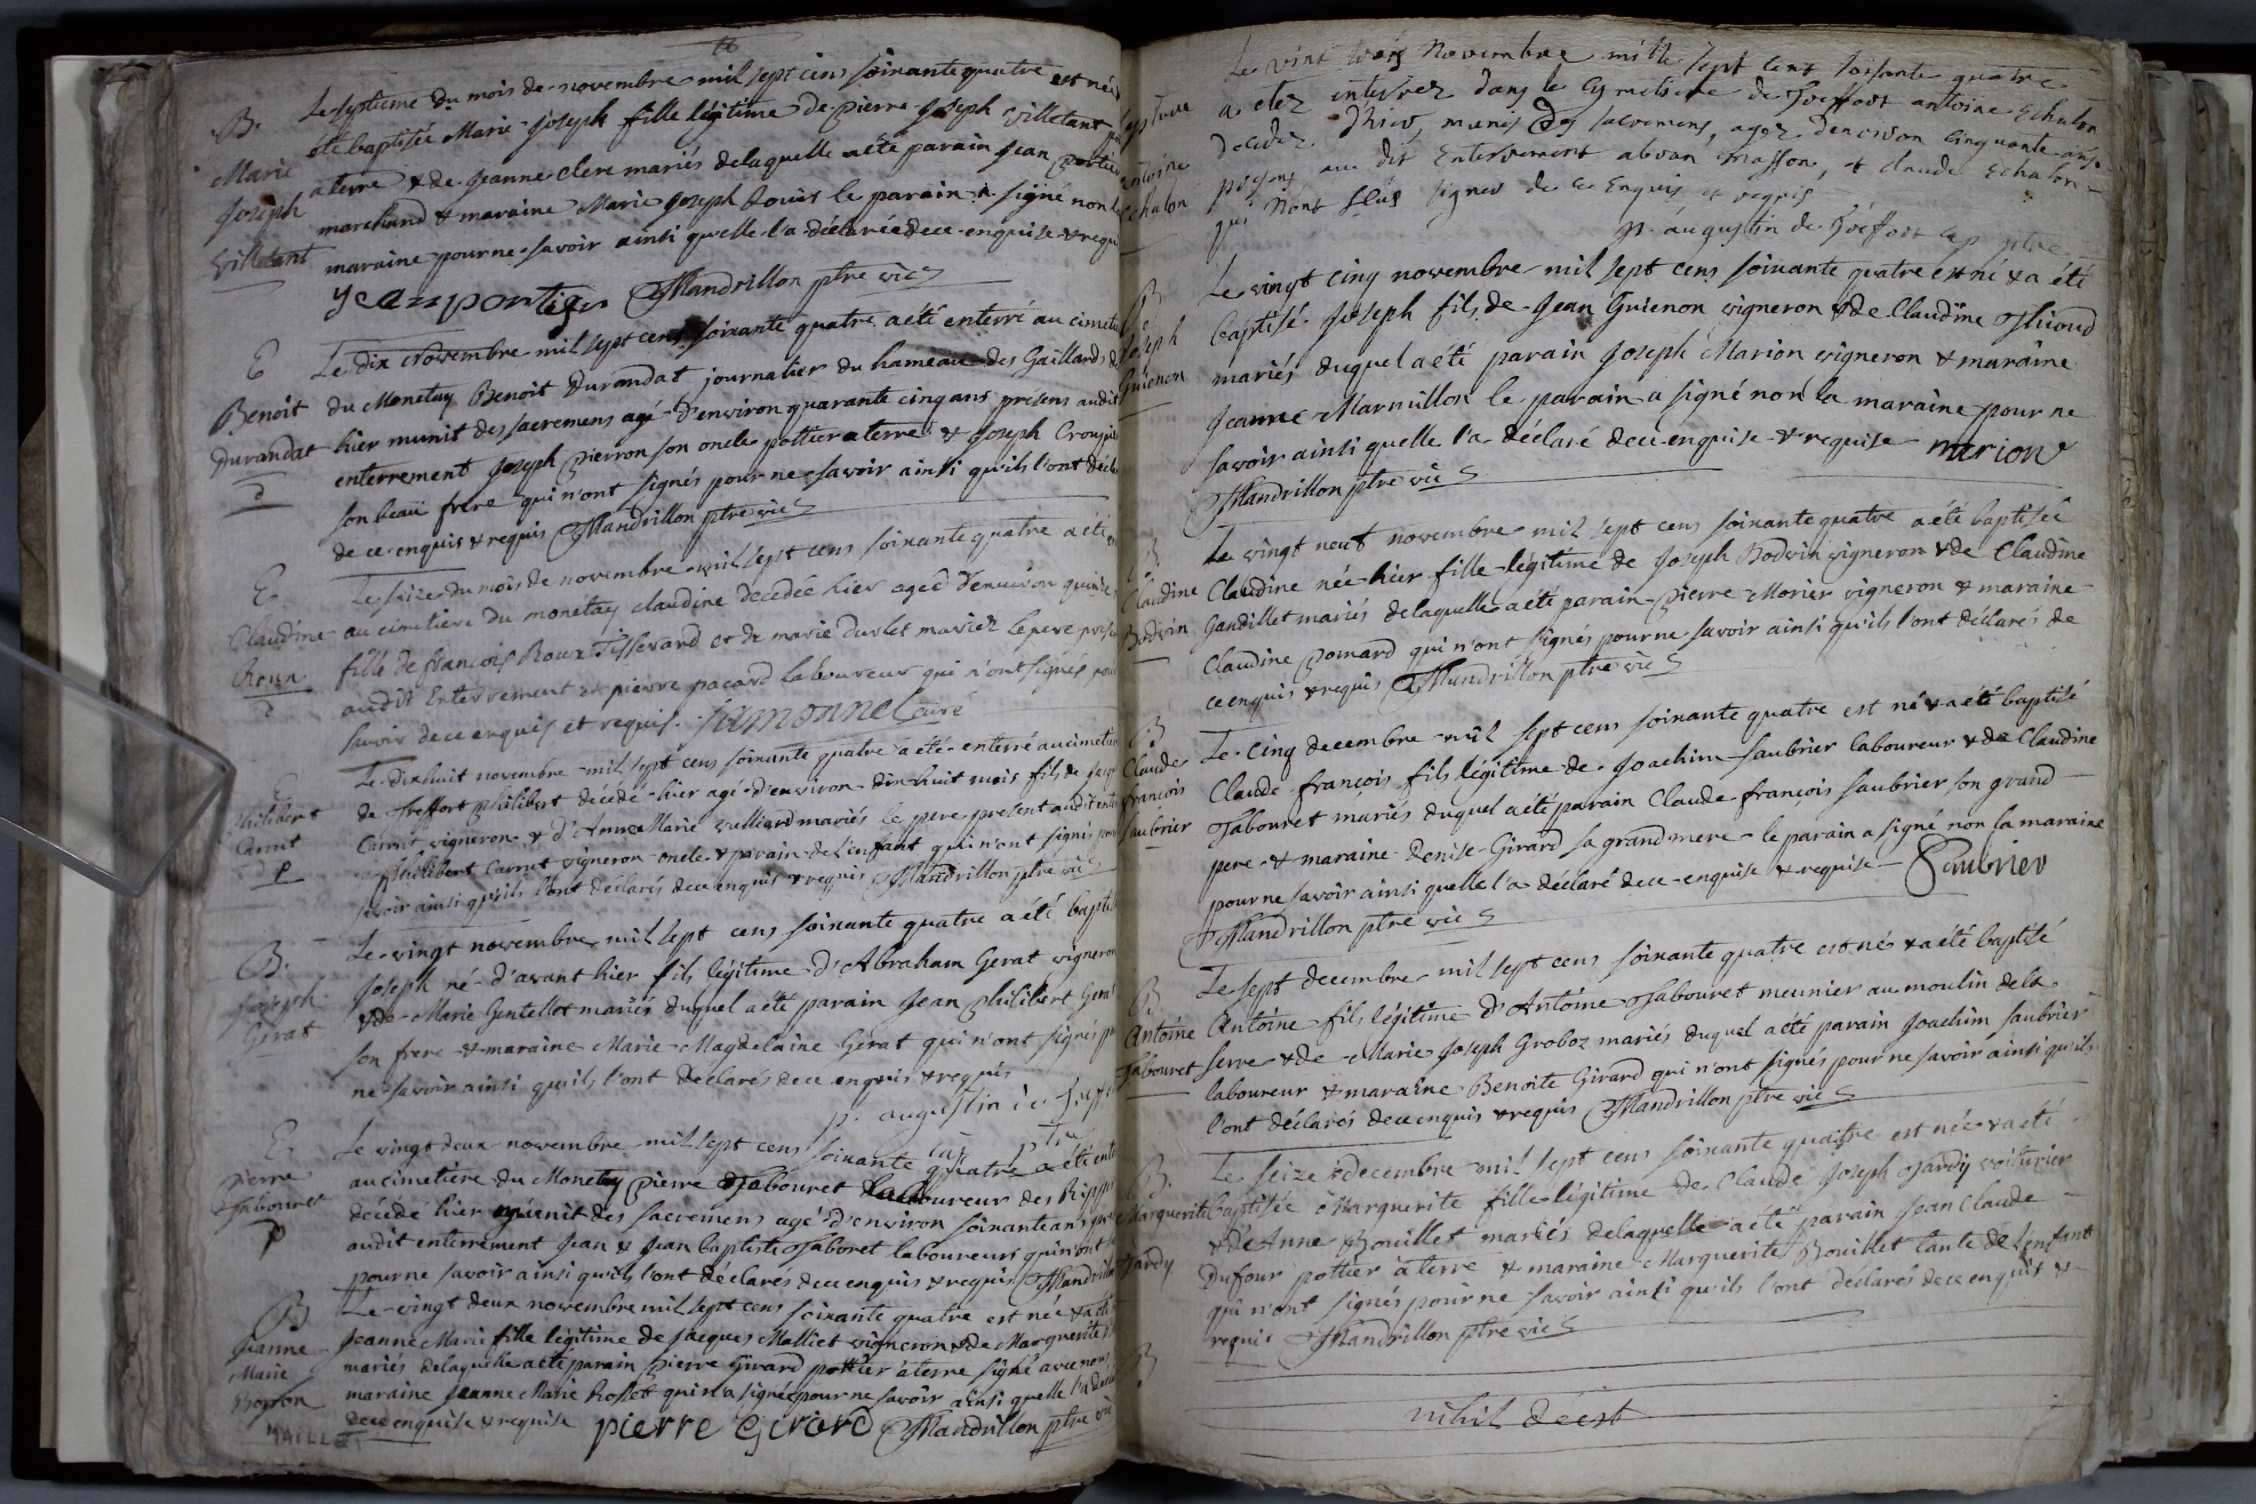 B.
Marie
Joseph
Villetant
Le septieme du mois de novembre mil sept cens soixante quatre est née
été baptisée Marie Joseph fille légitime de pierre Joseph Villetant
a terre & de Jeanne Clere mariés delaquelle a été parain Jean portier
marchand & maraine Marie Joseph Louis le parain a signé non la
maraine pour ne savoir ainsi quelle l'a déclarée de ce enquise & requ
jean portier Mandrillon ptre vic
E
Benoit
Durandat
Le dix Novembre mil sept cens soixante quatre a été enterré au cimetie
du Monetay Benoit Durandat journalier du hameau des Gaillards
hier munit des sacremens agé d'environ quarante cinq ans présens audit
enterrement Joseph Pierron son oncle pottier a terre & Joseph
son beau frere qui n'ont signés pour ne savoir ainsi qu'ils l'ont
de ce enquis & requis Mandrillon ptre vic
E
Claudine
Roux
Le seize du mois de novembre mil sept cens soixante quatre a été
au cimetiere du monetay claudine decedée hier agée d'environ quinze
fille de francois Roux Tisserand et de marie Durlet mariez le pere
audit Enterrement et pierre pacard laboureur qui n'ont signés pour
savoir de ce enquis et requis. curé
E
Philibert
Carret
Le dix huit novembre mil sept cens soixante quatre a été enterré au cimetie
de Treffort Philibert décédé hier agé d'environ dix huit mois fils de
Carret vigneron & d'Anne Marie Vulliard mariés le pere present audit
& Philibert Carret vigneron oncle & parain de l'enfant qui n'ont signés pour
savoir ainsi qu'ils l'ont déclarés de ce enquis & requis Mandrillon ptre vic
B.
Joseph
Gerat
Le vingt novembre mil sept cens soixante quatre a été bapti
Joseph né d'avant hier fils légitime d'Abraham Gerat vigneron
& de Marie Gentellet mariés duquel a été parain Jean Philibert
son frere & maraine Marie Magdelaine Gerat qui n'ont signés
ne savoir ainsi qu'ils l'ont déclarés de ce enquis & requis
p. augustin de
cap ptre
E
Pierre
Tabouret
Le vingt deux novembre mil sept cens soixante quatre a été
au cimetiere du Monetay Pierre Tabouret laboureur des
décédé hier munit des sacremens agé d'environ soixante ans
audit enterrement Jean & Jean baptiste Tabouret laboureurs qui n'ont
pour ne savoir ainsi qu'ils l'ont déclarés de ce enquis & requis
B
Jeanne
Marie
Le vingt deux novembre mil sept cens soixante quatre est née & a été
Jeanne Marie fille légitime de Jacques Malliet vigneron & de Marguerite
mariés delaquelle a été parain pierre Girard pottier a terre signé avec nous
maraine Jeanne Marie Rosset qui n'a signé pour ne savoir ainsi quelle l'a
de ce enquise & requise pierre Girard Mandrillon ptre vic
Antoine
Echalon
Le vint trois Novembre mille sept cent soisante quatre
a etez enterrez dans le Cymetiere de Treffort antoine Echalon
decedez D'hier, munis Des sacremens, agez d'environ cinquante ans
presens au dit Enterrement Masson, et claude Echalon
qui N'ont sçus signer de ce Enquis, et requis
p. augustin de Treffort cap ptre
B
Joseph
Guienon
Le vingt cinq novembre mil sept cens soixante quatre est né & a été
baptisé Joseph fils de Jean Guienon vigneron & de Claudine
mariés duquel a été parain Joseph Marion vigneron & maraine
Jeanne Marmillon le parain a signé non la maraine pour ne
savoir ainsi quelle l'a déclaré de ce enquise & requise marion
Mandrillon ptre vic
B
Claudine
Bodvin
Le vingt neuf novembre mil sept cens soixante quatre a été baptisée
Claudine née hier fille légitime de Joseph Bodvin vigneron & de Claudine
Gandillet mariés delaquelle a été parain Pierre Morier vigneron & maraine
Claudine Pomard qui n'ont signés pour ne savoir ainsi qu'ils l'ont déclarés de
ce enquis & requis Mandrillon ptre vic
B
Claude
françois
Saubrier
Le cinq decembre mil sept cens soixante quatre est né & a été baptisé
Claude françois fils légitime de Joachim Saubrier laboureur & de Claudine
Tabouret mariés duquel a été parain Claude françois Saubrier son grand
pere & maraine Denise Girard sa grand mere le parain a signé non la maraine
pour ne savoir ainsi quelle l'a déclaré de ce enquise & requise Saubrier
Mandrillon ptre vic
B.
Antoine
Tabouret
Le sept decembre mil sept cens soixante quatre est né & a été baptisé
Antoine fils légitime d'Antoine Tabouret meunier au moulin de la
serve & de Marie Joseph Groboz mariés duquel a été parain Joachim Saubrier
laboureur & maraine Benoite Girard qui n'ont signés pour ne savoir ainsi qu'ils
l'ont déclarés de ce enquis & requis Mandrillon ptre vic
B.
Marguerite
Tardy
Le seize decembre mil sept cens soixante quatre est née & a été
baptisée Marguerite fille légitime de Claude Joseph Tardy voiturier
& d'Anne Bouillet mariés delaquelle a été parain Jean Claude
Dufour pottier a terre & maraine Marguerite Bouillet tante de l'enfant
qui n'ont signés pour ne savoir ainsi qu'ils l'ont déclarés de ce enquis &
requis Mandrillon ptre vic
B
nihil deest